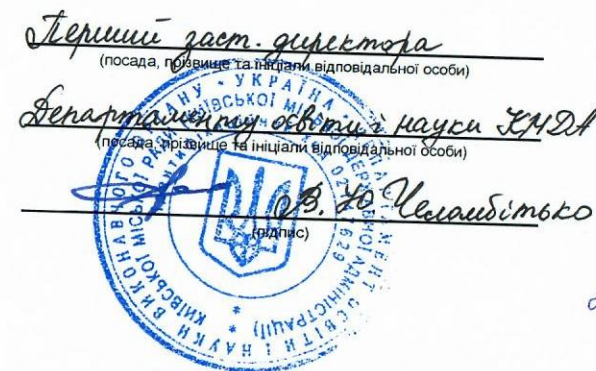 Перший заст. директора
(посада, прізвище та ініціали відповідальної особи)
Департаменту освіти і науки КМДА
(посада, прізвище та ініціали відповідальної особи)
В. Ю Челомбітько
(підпис)
УКРАЇНА
ДЕПАРТАМЕНТ ОСВІТИ І НАУКИ ВИКОНАВЧОГО ОРГАНУ
КИЇВСЬКОЇ МІСЬКОЇ РАДИ
КИЇВСЬКОЇ МІСЬКОЇ ДЕРЖАВНОЇ АДМІНІСТРАЦІЇ)